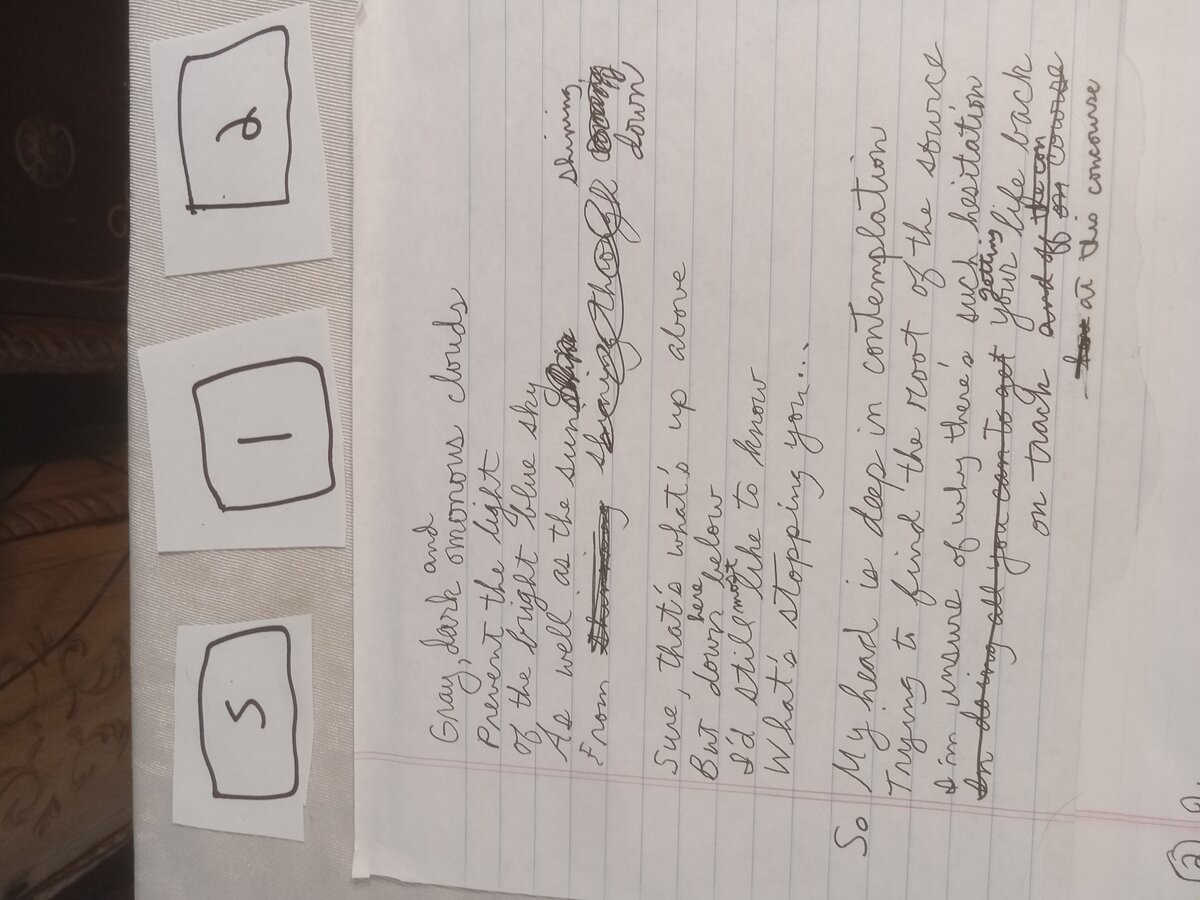 5 1 2
Gray, dark and omonous clouds
Prevent the light
Of the bright blue sky
As well as the sun
From shining down
Sure, that's what's up above
But down here below
I'd still most like to know
What's stopping you...
So My head is deep in contemplation
Trying to find the root of the source
I'm unsure of why there's such hesitation
In doing all you can to get getting your life back
on track and off the con on course
at this concourse